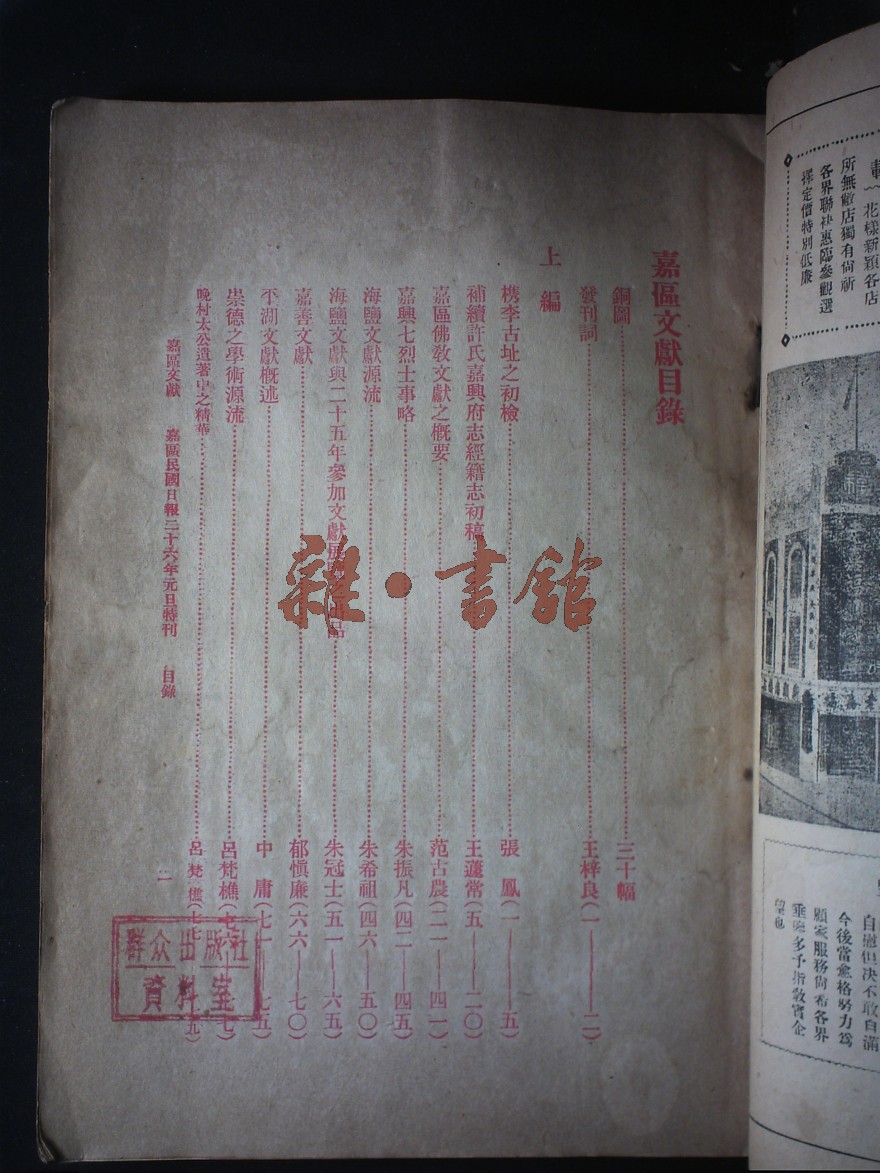 嘉區文獻目錄
銅圖三十幅
發刊詞王梓良(一——二)
上編
檇李古址之初檢張鳳(一——五)
補續許氏嘉興府志經籍志初稿王蘧常(五——二〇)
嘉區佛敎文獻之概要范古農(二一——四一)
嘉興七烈士事略朱振凡(四二——四五)
海鹽文獻源流朱希祖(四六——五〇)
海鹽文獻與二十五年參加文獻展覽之出品朱冠士(五一——六五)
嘉善文獻郁愼廉(六六——七〇)
平湖文獻概述中庸(七一——七五)
崇德之學術源流呂梵樵(七六——七七)
晩村太公遺著中之精華呂梵樵(七七——七九)
嘉區文獻 嘉區民國日報二十六年元旦特刊 目錄 一
群众出版社
資料室
雜·書館
花樣新穎各店
所無敝店獨有尙祈
各界聯袂惠臨參觀選
擇定價特別低廉
自慰但决不敢自滿
今後當愈格努力爲
顧客服務尙希各界
垂愛多予指敎實企
望也